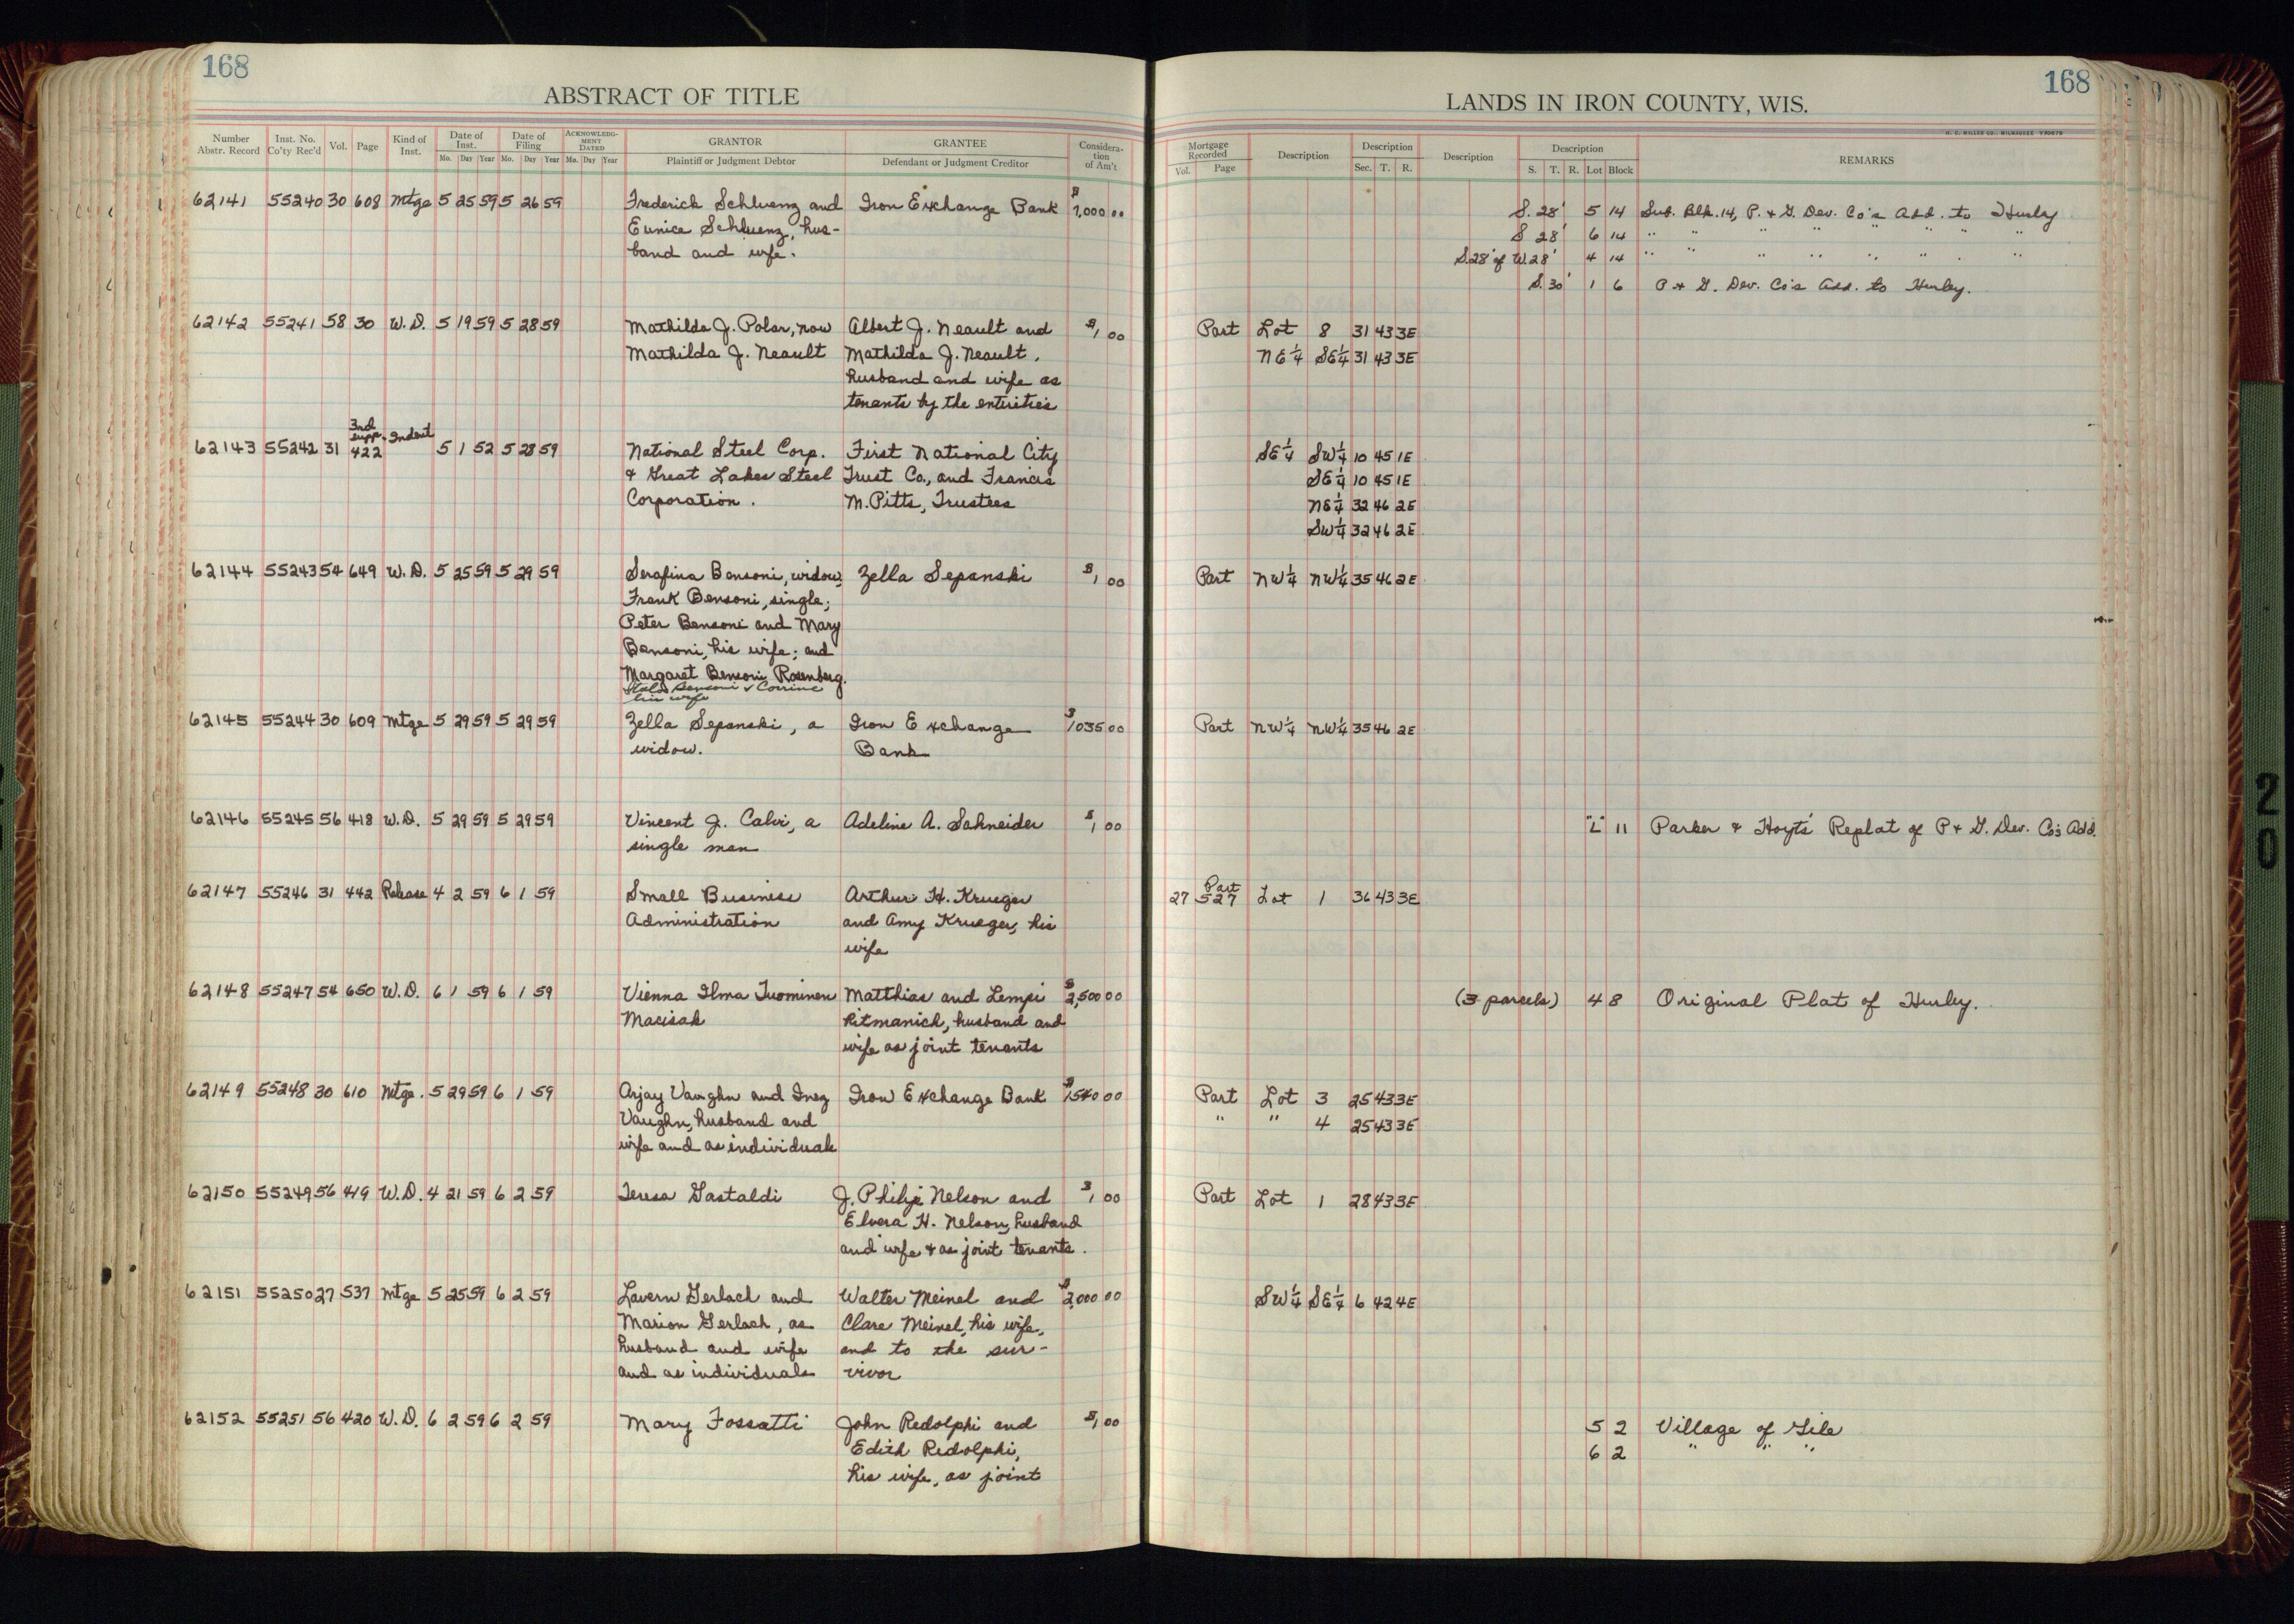 168
ABSTRACT OF TITLE
Number Abstr. Record
Inst. No. Co'ty Rec'd
Vol.
Page
Kind of Inst.
Date of Inst.
Mo. Day Year
Date of Filing
Mo. Day Year
ACKNOWLEDGMENT DATED
Mo. Day Year
GRANTOR
Plaintiff or Judgment Debtor
GRANTEE
Defendant or Judgment Creditor
Consideration of Am't
62141 55240 30 608 Mtge 5 25 59 5 26 59 Frederick Schluenz and Iron Exchange Bank $ 1,000 00
Eunice Schluenz, hus-
band and wife.
62142 55241 58 30 W.D. 5 19 59 5 28 59 Mathilda J. Polar, now Albert J. Neault and $1 00
Mathilda J. Neault Mathilda J. Neault,
husband and wife as
tenants by the entireties
supp. Indent
62143 55242 31 422 5 1 52 5 28 59 National Steel Corp. First National City
& Great Lakes Steel Trust Co., and Francis
Corporation. M. Pitts, Trustees
62144 55243 54 649 W.D. 5 25 59 5 29 59 Serafina Bensoni, widow; Zella Sepanski $1 00
Frank Bensoni, single;
Peter Bensoni and Mary
Bensoni, his wife; and
Margaret Bensoni Rosenberg.
Bensoni & Corrine
his wife
62145 55244 30 609 Mtge 5 29 59 5 29 59 Zella Sepanski, a Iron Exchange $1035 00
widow. Bank
62146 55245 56 418 W.D. 5 29 59 5 29 59 Vincent J. Calvi, a Adeline A. Sahneider $1 00
single man
62147 55246 31 442 Release 4 2 59 6 1 59 Small Business Arthur H. Krueger
Administration and Amy Krueger, his
wife
62148 55247 54 650 W.D. 6 1 59 6 1 59 Vienna Ilma Tuominen Matthias and Lempi $2,500 00
Macisak Kitmanich, husband and
wife as joint tenants
62149 55248 30 610 Mtge. 5 29 59 6 1 59 Arjay Vaughn and Inez Iron Exchange Bank $1540 00
Vaughn, husband and
wife and as individuals
62150 55249 56 419 W.D. 4 21 59 6 2 59 Teresa Gastaldi J. Philip Nelson and $1 00
Elvera H. Nelson, husband
and wife & as joint tenants.
62151 55250 27 537 Mtge 5 25 59 6 2 59 Lavern Gerlach and Walter Meinel and $2,000 00
Marion Gerlach, as Clara Meinel, his wife,
husband and wife and to the sur-
and as individuals vivor
62152 55251 56 420 W.D. 6 2 59 6 2 59 Mary Fossatti John Redolphi and $1 00
Edith Redolphi,
his wife, as joint
168
LANDS IN IRON COUNTY, WIS.
H. C. MILLER CO., MILWAUKEE
Mortgage Recorded
Vol. Page
Description
Description
Sec. T. R.
Description
Description
S. T. R. Lot Block
REMARKS
S. 28' 5 14 Sub. Blk. 14, P. & G. Dev. Co's Add. to Hurley
S 28' 6 14 " " " " " " " "
S.28' of W.28' 4 14 " " " " " " . "
S. 30' 1 6 P & G. Dev. Co's Add. to Hurley.
Part Lot 8 31 43 3E
NE¼ SE¼ 31 43 3E
SE¼ SW¼ 10 45 1E
SE¼ 10 45 1E
NE¼ 32 46 2E
SW¼ 32 46 2E
Part NW¼ NW¼ 35 46 2E
Part NW¼ NW¼ 35 46 2E
"L" 11 Parker & Hoyts' Replat of P & G. Dev. Co's Add.
Part
27 527 Lot 1 36 43 3E
(3 parcels) 4 8 Original Plat of Hurley.
Part Lot 3 25 43 3E
" " 4 25 43 3E
Part Lot 1 28 43 3E
SW¼ SE¼ 6 42 4E
5 2 Village of Gile
6 2 " " "
20